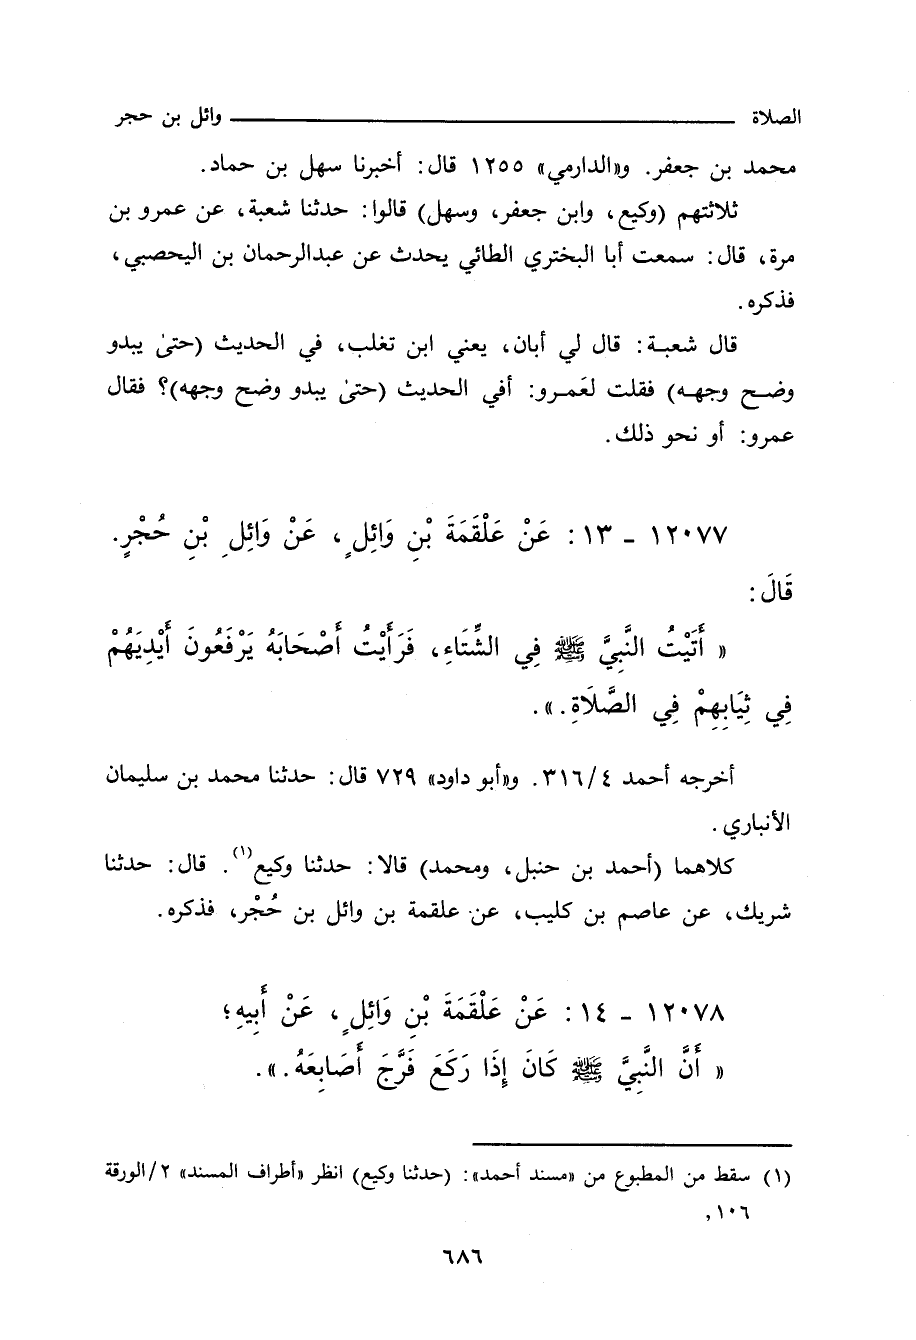 الصلاة ــــــــــ وائل بن حجر
محمد بن جعفر. و«الدارمي» ١٢٥٥ قال: أخبرنا سهل بن حماد.
ثلاثتهم (وكيع، وابن جعفر، وسهل) قالوا: حدثنا شعبة، عن عمرو بن
مرة، قال: سمعت أبا البختري الطائي يحدث عن عبدالرحمان بن اليحصبي،
فذكره.
قال شعبة: قال لي أبان، يعني ابن تغلب، في الحديث (حتىٰ يبدو
وضح وجهه) فقلت لعَمرو: أفي الحديث (حتىٰ يبدو وضح وجهه)؟ فقال
عمرو: أو نحو ذلك.
١٢٠٧٧ - ١٣: عَنْ عَلْقَمَةَ بْنِ وَائِلٍ، عَنْ وَائِلِ بْنِ حُجْرٍ.
قَالَ:
« أَتَيْتُ النَّبِيَّ ﷺ فِي الشِّتَاءِ، فَرَأَيْتُ أَصْحَابَهُ يَرْفَعُونَ أَيْدِيَهُمْ
فِي ثِيَابِهِمْ فِي الصَّلَاةِ.».
أخرجه أحمد ٣١٦/٤. و«أبو داود» ٧٢٩ قال: حدثنا محمد بن سليمان
الأنباري.
كلاهما (أحمد بن حنبل، ومحمد) قالا: حدثنا وكيع(١). قال: حدثنا
شريك، عن عاصم بن كليب، عن علقمة بن وائل بن حُجْر، فذكره.
١٢٠٧٨ - ١٤: عَنْ عَلْقَمَةَ بْنِ وَائِلٍ، عَنْ أَبِيهِ؛
« أَنَّ النَّبِيَّ ﷺ كَانَ إِذَا رَكَعَ فَرَّجَ أَصَابِعَهُ.».
(١) سقط من المطبوع من «مسند أحمد»: (حدثنا وكيع) انظر «أطراف المسند» ٢/الورقة
١٠٦,
٦٨٦